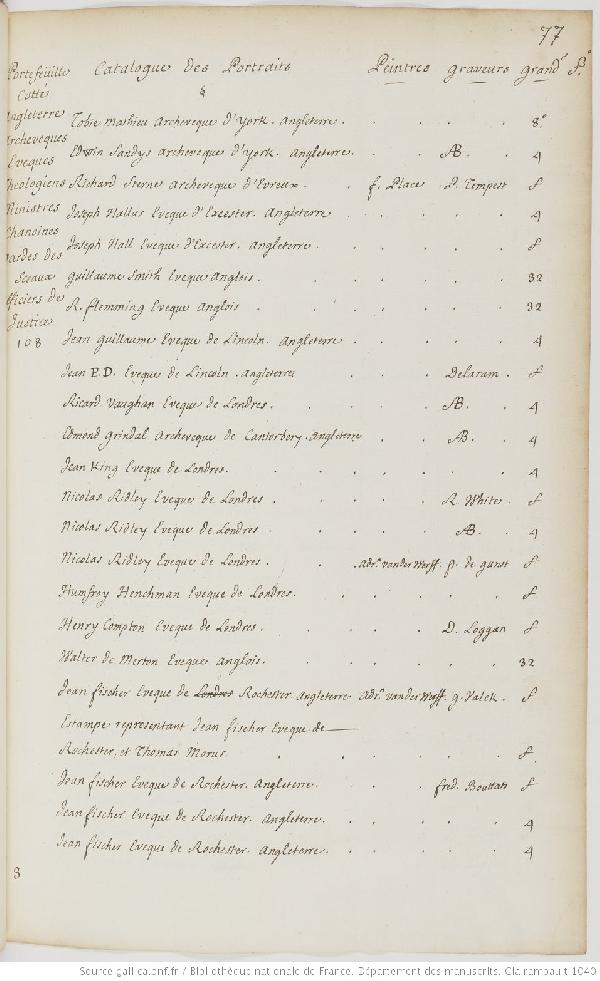 77
Portefeuille Catalogue des Portraits Peintres graveurs grandr fo.
Cotté §
Angleterre
Tobie Mathieu Archeveque d'York. Angleterre. 8o
Archevêques
Edwin Sandys Archeveque d'York. Angleterre. AB. 4
Eveques
Theologiens Richard Sterne Archeveque d'Evreux. f. Place D. Tempest f
Ministres
Joseph Hallus Eveque d'Excester. Angleterre 4
Chanoines
Joseph Hall Eveque d'Excester. Angleterre. f
Gardes des
Sceaux guillaume Smith Eveque Anglois. 32
Officiers de
R. flemming Eveque Anglois 32
Justice
108 Jean guillaume Eveque de Lincoln. Angleterre 4
Jean E.D. Eveque de Lincoln. Angleterre Delaram. f
Ricard Vaughan Eveque de Londres. AB. 4
Edmond Grindal Archeveque de Cantorbery. Angleterre AB. 4
Jean King Eveque de Londres. 4
Nicolas Ridley Eveque de Londres. R. White. f
Nicolas Ridley Eveque de Londres AB. 4
Nicolas Ridley Eveque de Londres. Adr. vander Werff. p. de gunst f
Humfrey Henchman Eveque de Londres. f
Henry Compton Eveque de Londres. D. Loggan f
Walter de Merton Eveque Anglois. 32
Jean fischer Eveque de Londres Rochester Angleterre Adr. vander Werff. g. Valck. f
Estampe representant Jean fischer Eveque de
Rochester, et Thomas Morus. f
Jean fischer Eveque de Rochester. Angleterre. fred. Bouttats f
Jean fischer Eveque de Rochester. Angleterre. 4
Jean fischer Eveque de Rochester. Angleterre. 4
8
Source gallica.bnf.fr / Bibliothèque nationale de France. Département des manuscrits. Clairambault 1040